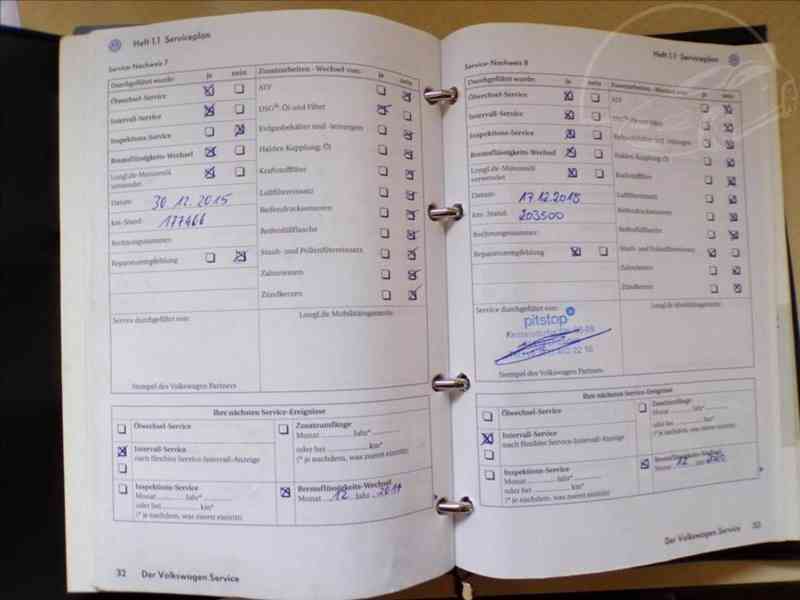 Heft 1.1 Serviceplan
Service-Nachweis 7
Durchgeführt wurde: ja nein
Ölwechsel-Service
Intervall-Service
Inspektions-Service
Bremsflüssigkeits-Wechsel
Longlife-Motorenöl
verwendet
Datum: 30.12.2015
km-Stand: 177466
Rechnungsnummer:
Reparaturempfehlung
Zusatzarbeiten - Wechsel von: ja nein
ATF
DSG®: Öl und Filter
Erdgasbehälter und -leitungen
Haldex Kupplung: Öl
Kraftstofffilter
Luftfiltereinsatz
Reifendrucksensoren
Reifenfüllflasche
Staub- und Pollenfiltereinsatz
Zahnriemen
Zündkerzen
Service durchgeführt von:
LongLife Mobilitätsgarantie:
Stempel des Volkswagen Partners
Ihre nächsten Service-Ereignisse
Ölwechsel-Service
Intervall-Service
nach flexibler Service-Intervall-Anzeige
Inspektions-Service
Monat Jahr*
oder bei km*
(* je nachdem, was zuerst eintritt)
Zusatzumfänge
Monat Jahr*
oder bei km*
(* je nachdem, was zuerst eintritt)
Bremsflüssigkeits-Wechsel
Monat 12 Jahr 2017
32 Der Volkswagen Service
Heft 1.1 Serviceplan
Service-Nachweis 8
Durchgeführt wurde: ja nein
Ölwechsel-Service
Intervall-Service
Inspektions-Service
Bremsflüssigkeits-Wechsel
Longlife-Motorenöl
verwendet
Datum: 17.12.2018
km-Stand: 203500
Rechnungsnummer:
Reparaturempfehlung
Zusatzarbeiten - Wechsel von: ja nein
ATF
DSG®: Öl und Filter
Erdgasbehälter und -leitungen
Haldex Kupplung: Öl
Kraftstofffilter
Luftfiltereinsatz
Reifendrucksensoren
Reifenfüllflasche
Staub- und Pollenfiltereinsatz
Zahnriemen
Zündkerzen
Service durchgeführt von:
pitstop
LongLife Mobilitätsgarantie:
Stempel des Volkswagen Partners
Ihre nächsten Service-Ereignisse
Ölwechsel-Service
Intervall-Service
nach flexibler Service-Intervall-Anzeige
Inspektions-Service
Monat Jahr*
oder bei km*
(* je nachdem, was zuerst eintritt)
Zusatzumfänge
Monat Jahr*
oder bei km*
(* je nachdem, was zuerst eintritt)
Bremsflüssigkeits-Wechsel
Monat 12
Der Volkswagen Service 33